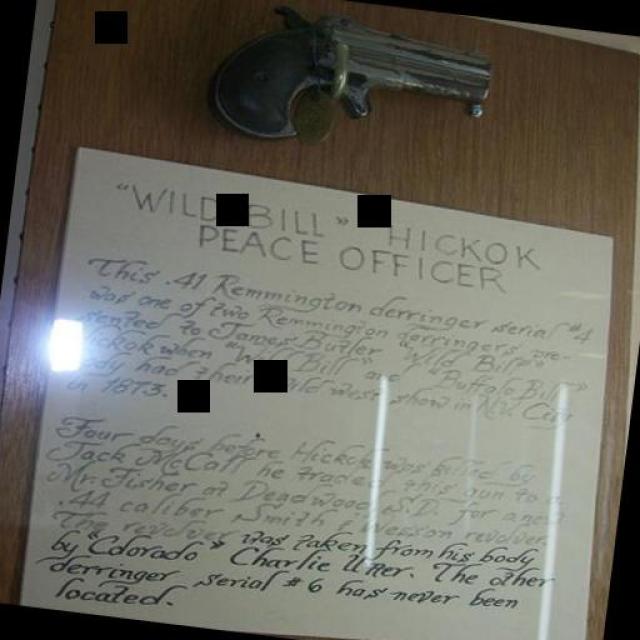 "WILD BILL" HICKOK
PEACE OFFICER
This .41 Remmington derringer serial #4
was one of two Remmington derringers pre-
sented to James Butler "Wild Bill"
when Wild Bill and Buffalo Bill
had their wild west show in
in 1873.
Four days before Hickok was killed by
Jack McCall he traded this gun to a
Mr. Fisher in Deadwood S.D. for a
.44 caliber Smith & Wesson revolver.
The revolver was taken from his body
by "Colorado" Charlie Utter. The other
derringer serial #6 has never been
located.